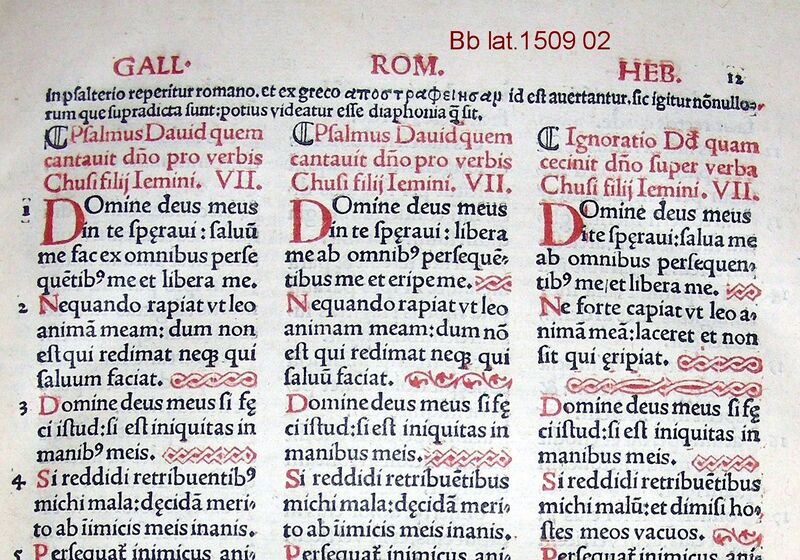 Bb lat.1509 02
GALL· ROM. HEB. 12
in psalterio reperitur romano. et ex greco αποςτραφεινσαμ id est auertantur. sic igitur nōnullo
rum que supradicta sunt: potius videatur esse diaphonia q̄ sit.
ℂPsalmus Dauid quem
cantauit dn̄o pro verbis
Chusi filij Iemini. VII.
1 DOmine deus meus
in te spęraui: saluū
me fac ex omnibus perse
quētibꝰ me et libera me.
2 Nequando rapiat vt leo
animā meam: dum non
est qui redimat neqꝫ qui
saluum faciat.
3 Domine deus meus si fę
ci istud: si est iniquitas in
manibꝰ meis.
4 Si reddidi retribuentibꝰ
michi mala: dęcidā meri-
to ab īimicis meis inanis.
5 Persequat̄ inimicus ani-
ℂPsalmus Dauid quem
cantauit dn̄o pro verbis
Chusi filij Iemini. VII.
DOmine deus meus
in te spęraui: libera
me ab omnibꝰ persequē-
tibus me et eripe me.
Nequando rapiat vt leo
animam meam: dum nō
est qui redimat neqꝫ qui
saluū faciat.
Domine deus meus si fę
ci istud: si est iniquitas in
manibus meis.
Si reddidi retribuētibus
michi mala: dęcidā meri-
to ab īimicis meis inanis.
Persequat̄ inimicus ani-
ℂ Ignoratio Dd̄ quam
cecinit dn̄o super verba
Chusi filij Iemini. VII.
DOmine deus meus
ī te speraui: salua me
ab omnibus persequen-
tibꝰ me/et libera me.
Ne forte capiat vt leo a-
nimā meā: laceret et non
sit qui ęripiat.
Domine deus meus si fę
ci istud: si est iniquitas in
manibus meis.
Si reddidi retribuentibus
michi malū: et dimisi ho-
stes meos vacuos.
Persequat̄ inimicus ani-